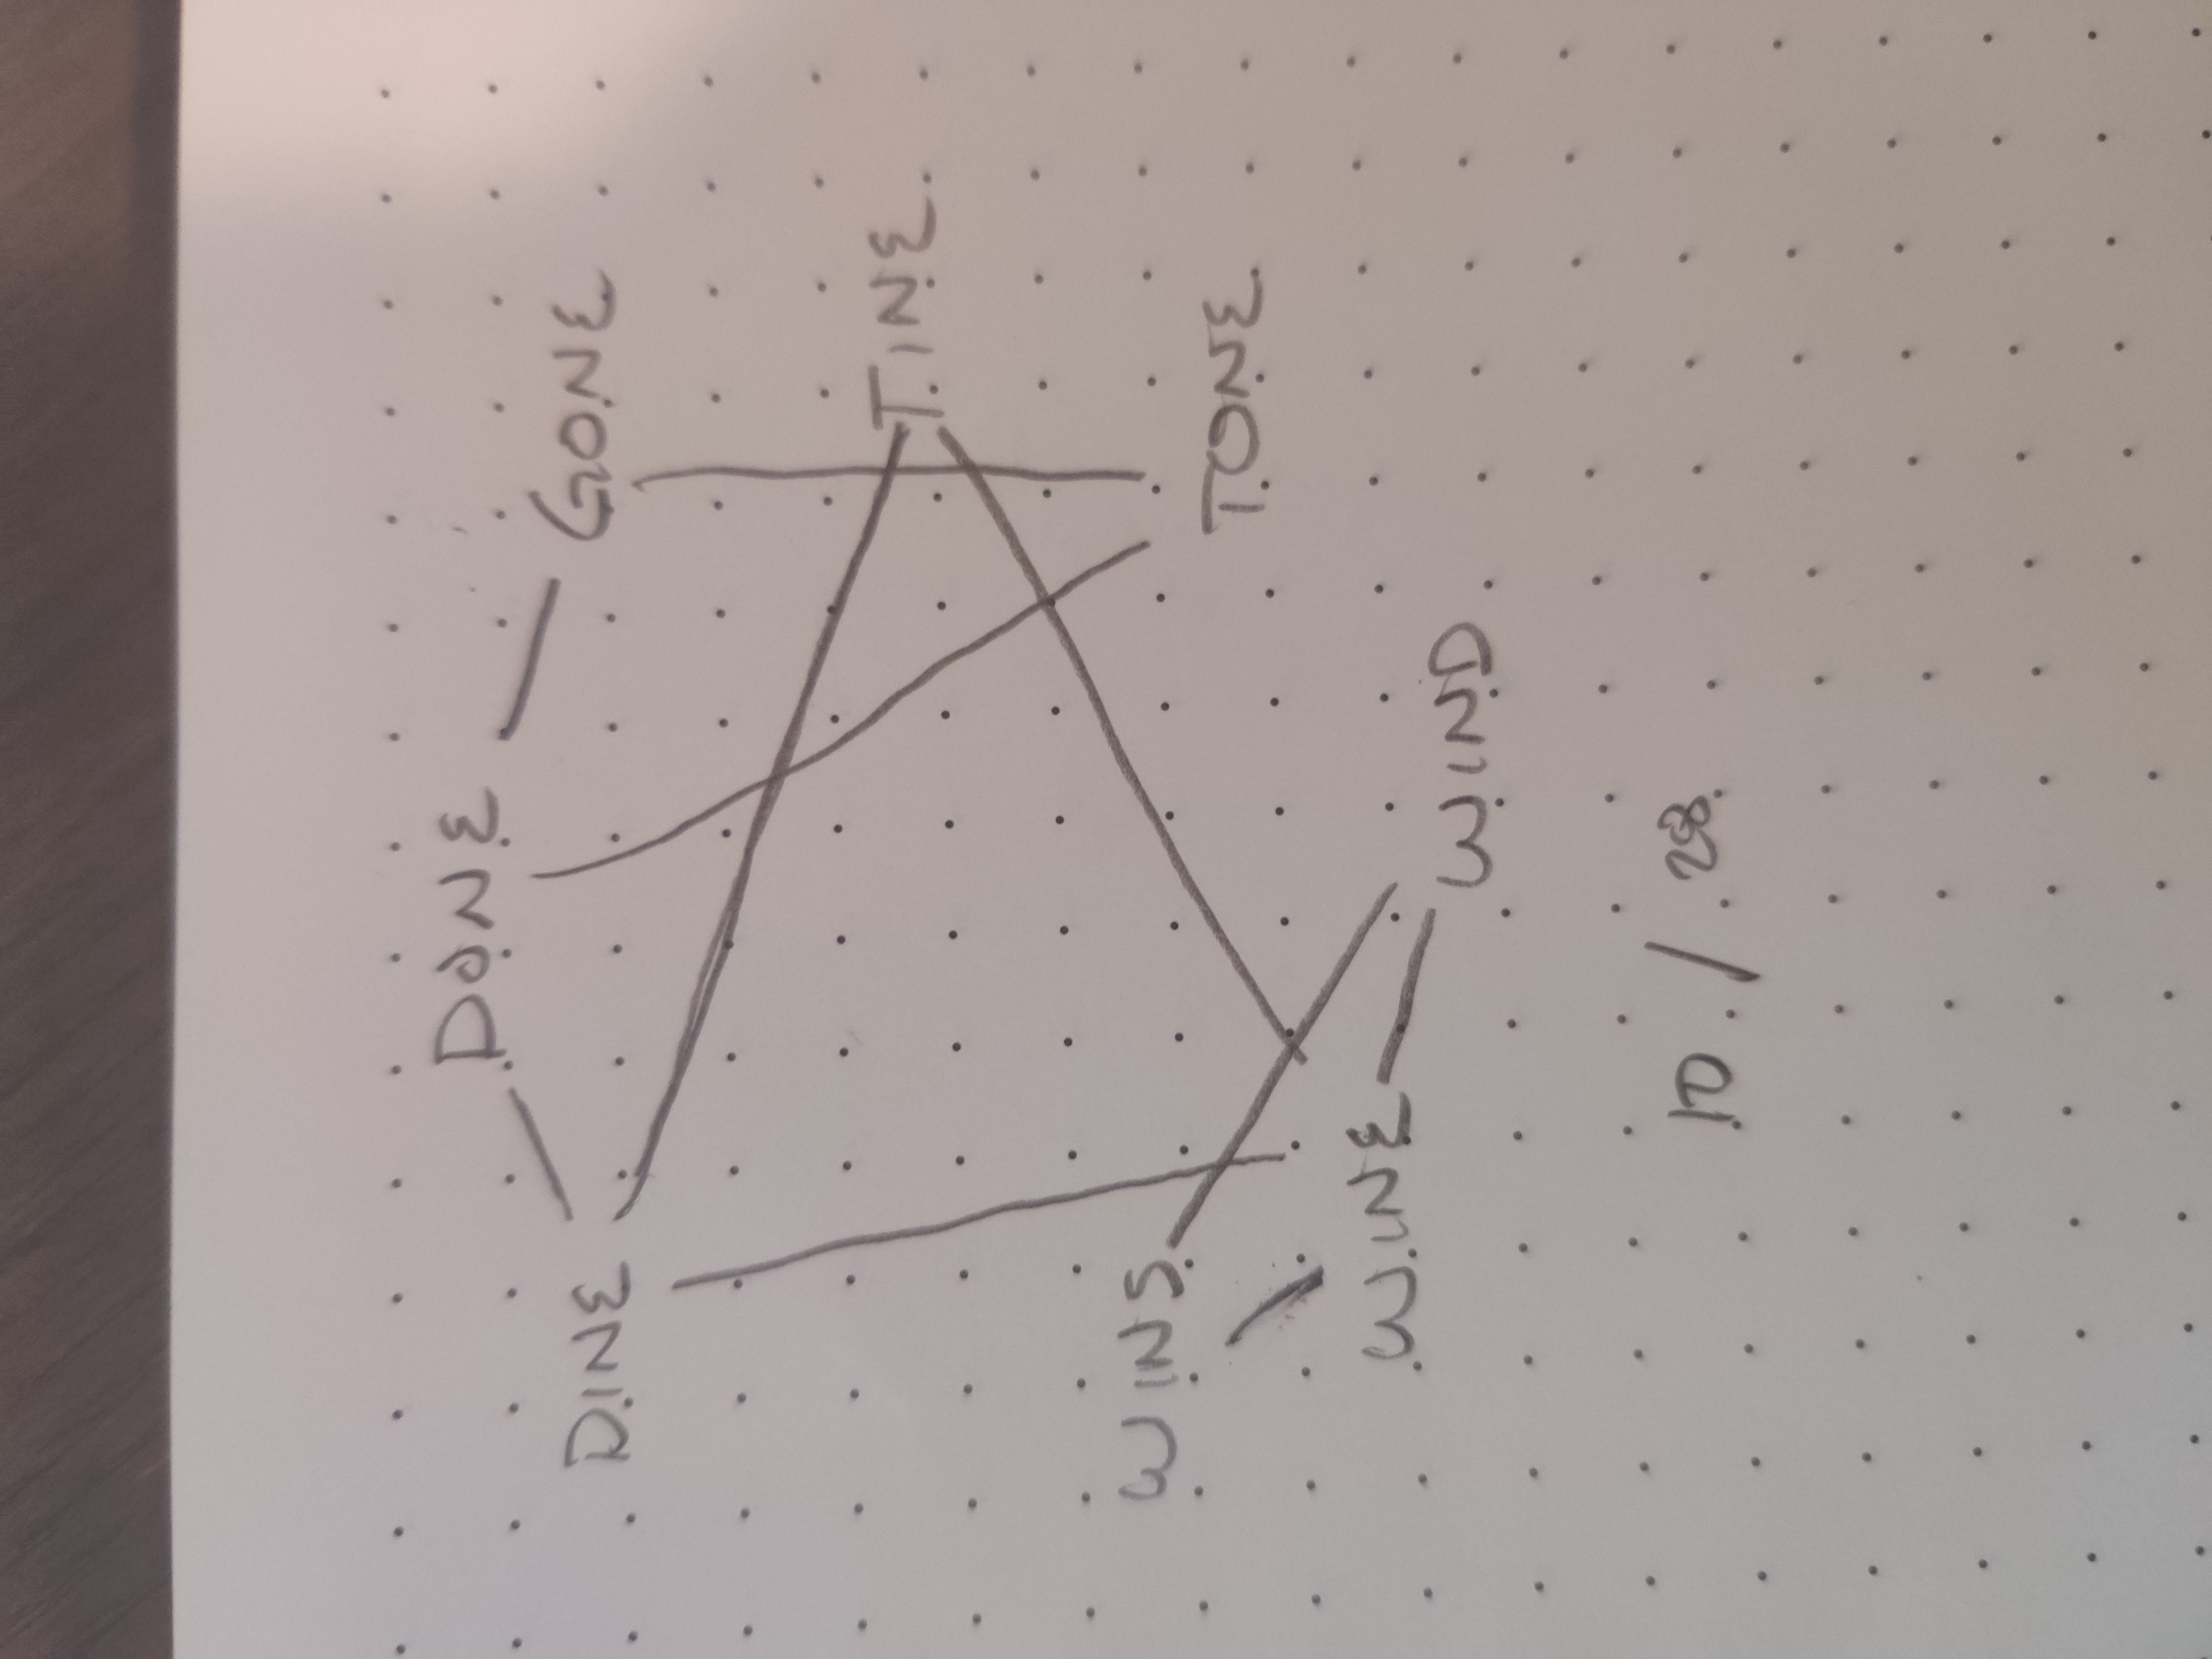 DONE
DINE
GONE
TINE
WINS
TONE
WINE
WIND
10 / 28